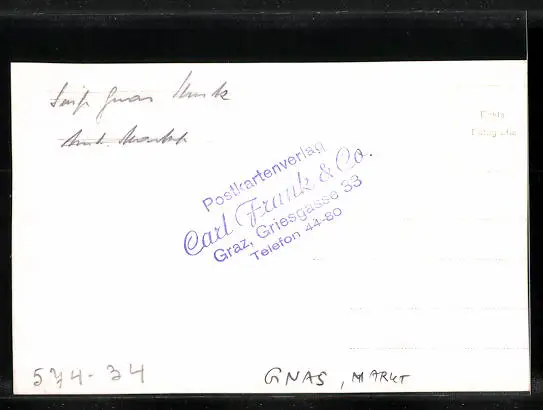 Gnas Markt
Echte
Fotografie
Postkartenverlag
Carl Frank & Co.
Graz, Griesgasse 33
Telefon 44-80
574-34
GNAS, MARKT